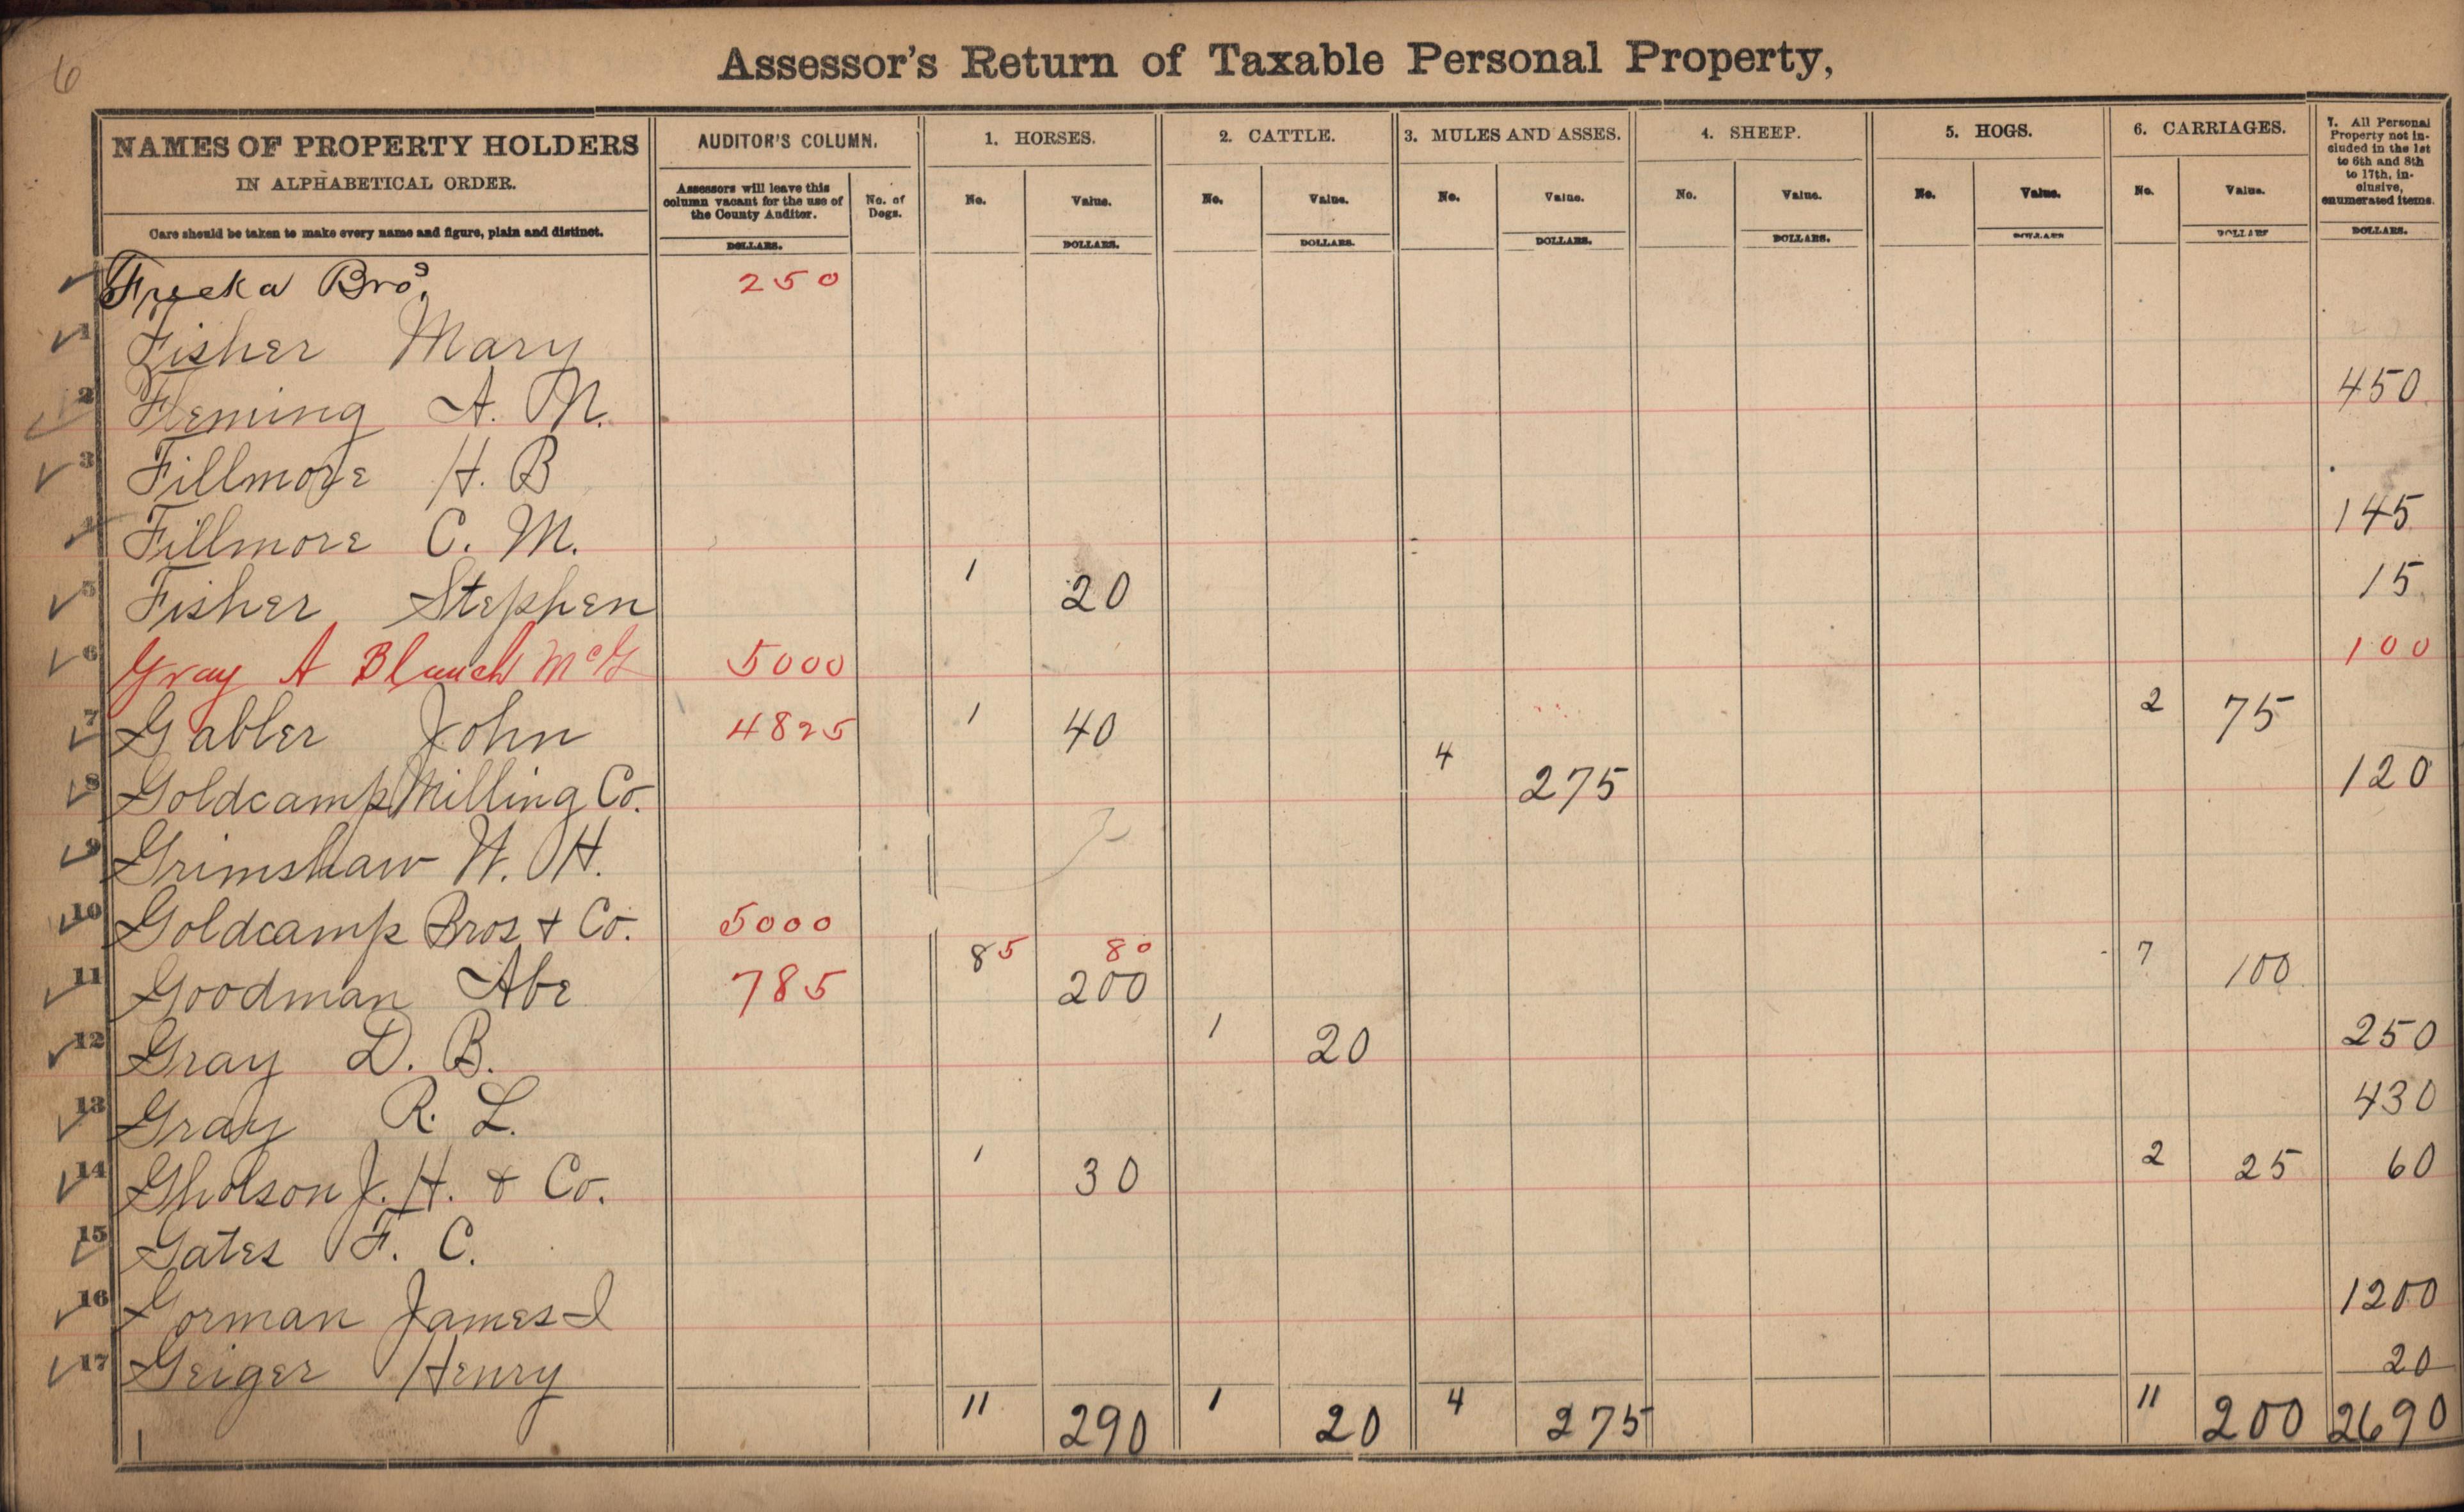 6
Assessor's Return of Taxable Personal Property,
NAMES OF PROPERTY HOLDERS
IN ALPHABETICAL ORDER.
Care should be taken to make every name and figure, plain and distinct.
AUDITOR'S COLUMN.
Assessors will leave this column vacant for the use of the County Auditor.
DOLLARS.
No. of Dogs.
1. HORSES.
No. Value.
DOLLARS.
2. CATTLE.
No. Value.
DOLLARS.
3. MULES AND ASSES.
No. Value.
DOLLARS.
4. SHEEP.
No. Value.
DOLLARS.
5. HOGS.
No. Value.
DOLLARS
6. CARRIAGES.
No. Value.
DOLLARS
7. All Personal Property not included in the 1st to 6th and 8th to 17th, inclusive, enumerated items.
DOLLARS.
Bros. 250
1 Fisher Mary
2 Fleming A. M. 450
3 Fillmore H. B
4 Fillmore C. M. 145
5 Fisher Stephen 1 20 15
6 Gray A Blanch McG 5000 100
7 Gabler John 4825 1 40 2 75
8 Goldcamp Milling Co. 4 275 120
9 Grimshaw W. H.
10 Goldcamp Bros + Co. 5000
11 Goodman Abe 785 8 5 80 200 7 100
12 Gray D. B. 1 20 250
13 Gray R. L. 430
14 Gholson J. H. & Co. 1 30 2 25 60
15 Gates F. C.
16 Gorman James I 1200
17 Geiger Henry 20
11 290 1 20 4 275 11 200 2690